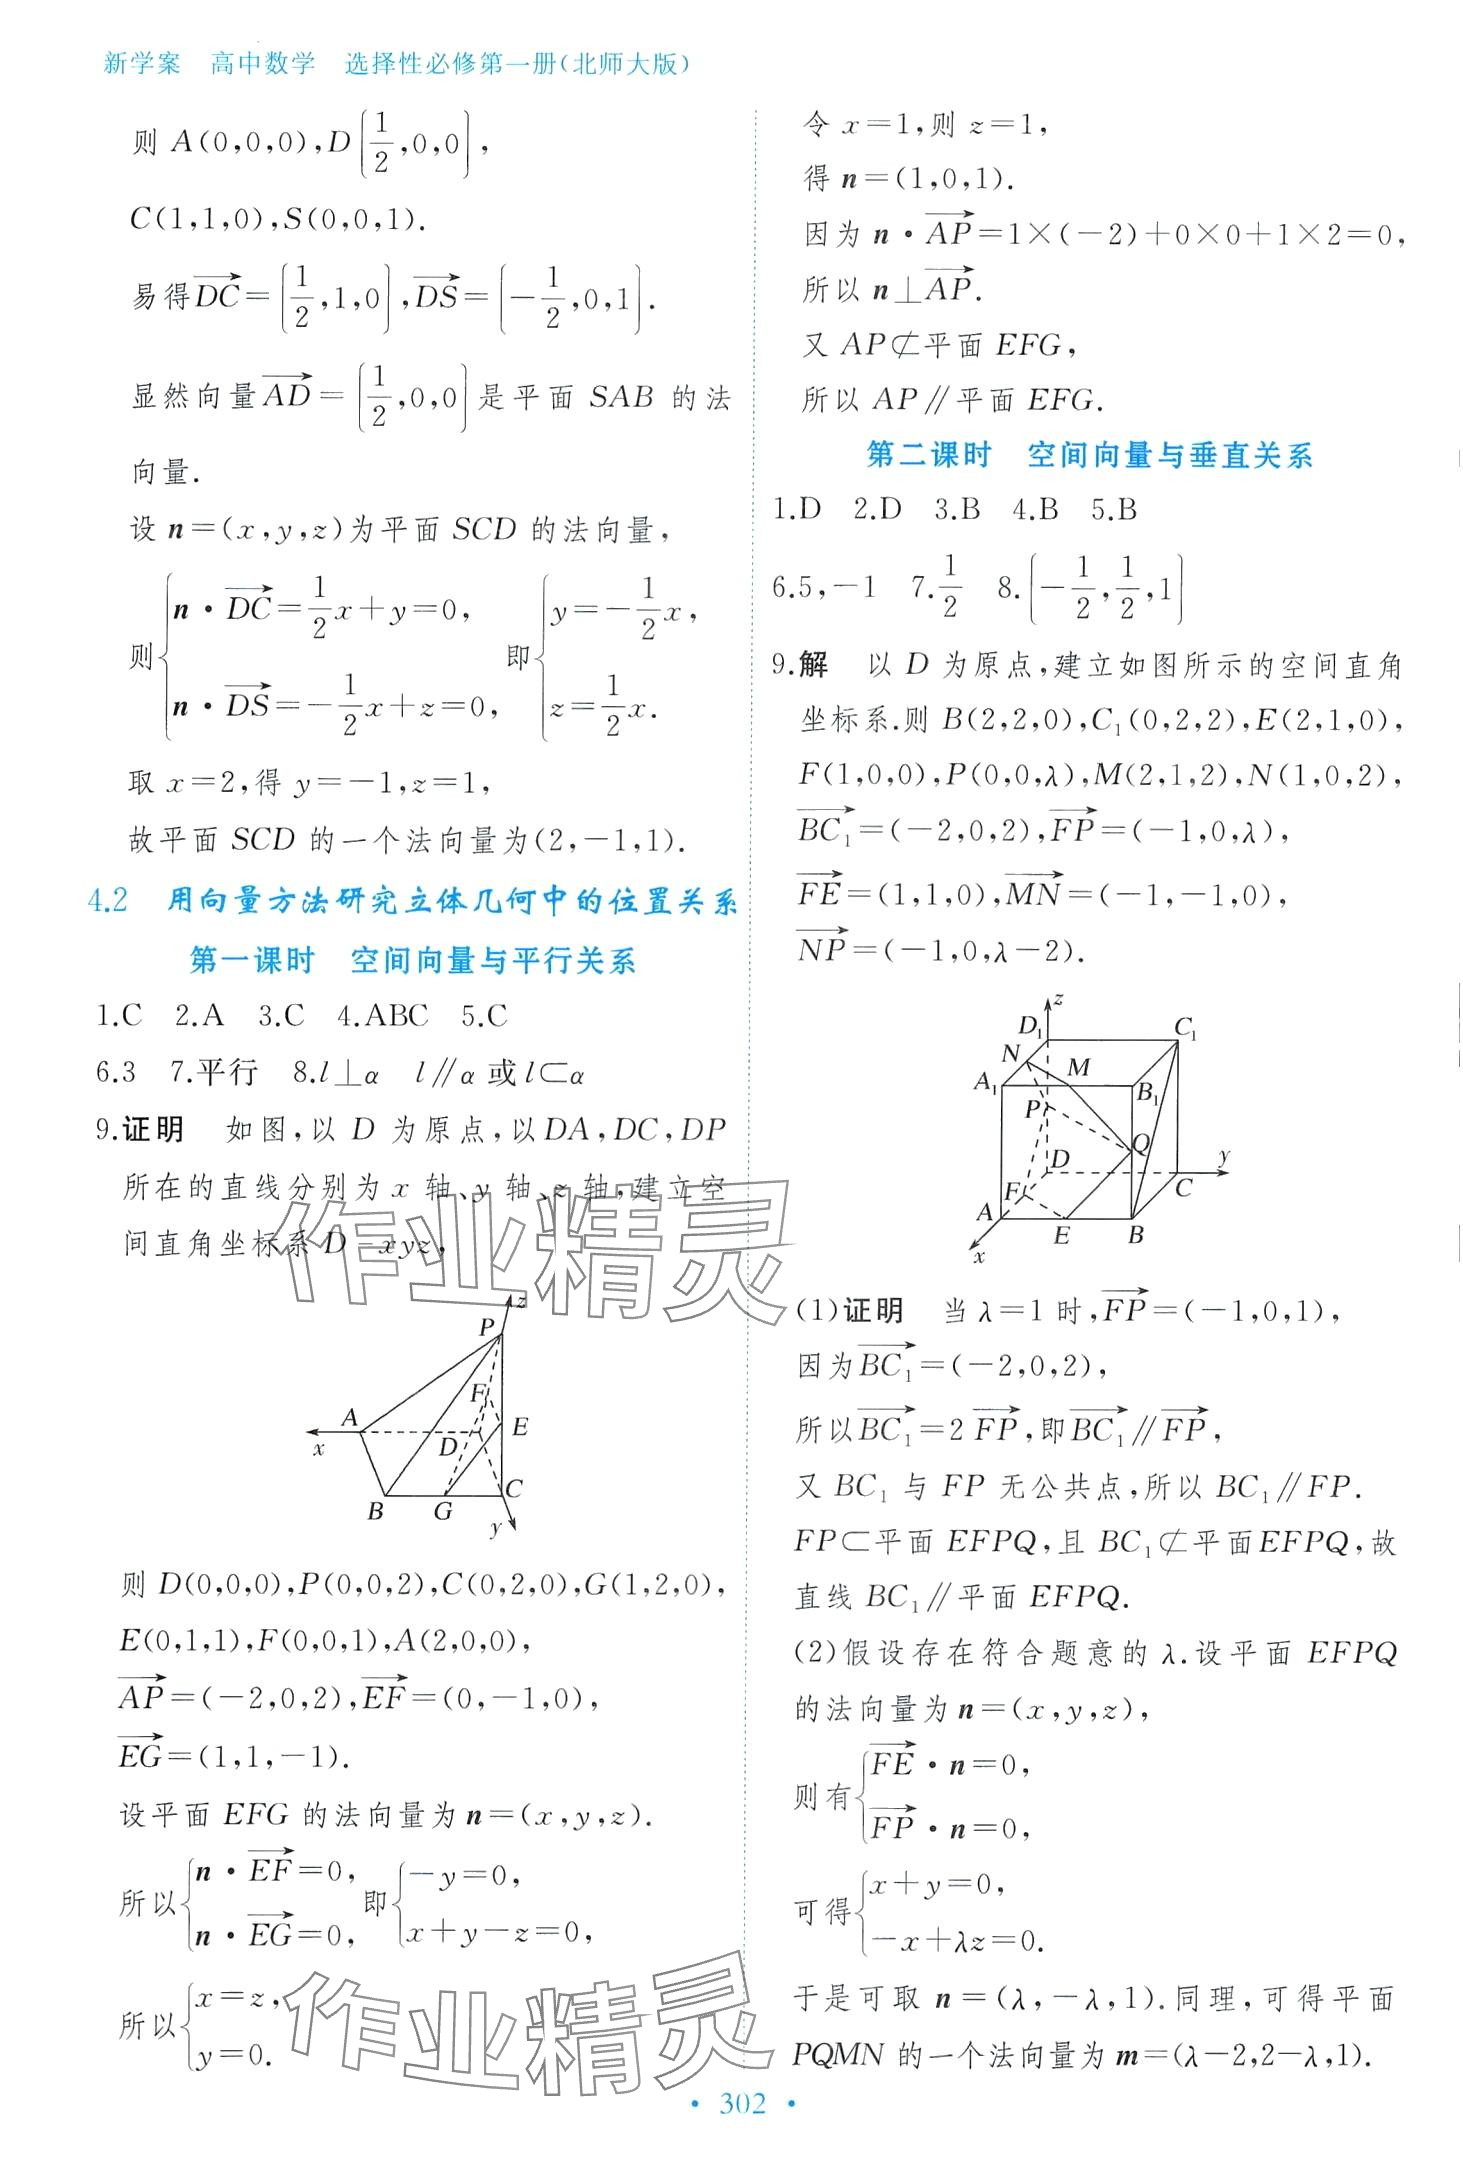 新学案　高中数学　选择性必修第一册(北师大版)
则 A(0,0,0),D(1/2,0,0),
C(1,1,0),S(0,0,1).
易得\overrightarrow{DC}=(1/2,1,0),\overrightarrow{DS}=(-1/2,0,1).
显然向量\overrightarrow{AD}=(1/2,0,0)是平面 SAB 的法
向量.
设 n=(x,y,z)为平面 SCD 的法向量,
则{n·\overrightarrow{DC}=1/2x+y=0, n·\overrightarrow{DS}=-1/2x+z=0, 即{y=-1/2x, z=1/2x.
取 x=2,得 y=-1,z=1,
故平面 SCD 的一个法向量为(2,-1,1).
4.2　用向量方法研究立体几何中的位置关系
第一课时　空间向量与平行关系
1.C　2.A　3.C　4.ABC　5.C
6.3　7.平行　8.l⊥α　l∥α或l⊂α
9.证明　如图,以 D 为原点,以DA,DC,DP
所在的直线分别为 x 轴、y 轴、z 轴,建立空
间直角坐标系 D-xyz,
z
P
F
A
E
x
D
B
G
C
y
则 D(0,0,0),P(0,0,2),C(0,2,0),G(1,2,0),
E(0,1,1),F(0,0,1),A(2,0,0),
\overrightarrow{AP}=(-2,0,2),\overrightarrow{EF}=(0,-1,0),
\overrightarrow{EG}=(1,1,-1).
设平面 EFG 的法向量为 n=(x,y,z).
所以{n·\overrightarrow{EF}=0, n·\overrightarrow{EG}=0, 即{-y=0, x+y-z=0,
所以{x=z, y=0.
令 x=1,则 z=1,
得 n=(1,0,1).
因为 n·\overrightarrow{AP}=1×(-2)+0×0+1×2=0,
所以 n⊥\overrightarrow{AP}.
又 AP⊄平面 EFG,
所以 AP∥平面 EFG.
第二课时　空间向量与垂直关系
1.D　2.D　3.B　4.B　5.B
6.5,-1　7.1/2　8.(-1/2,1/2,1)
9.解　以 D 为原点,建立如图所示的空间直角
坐标系.则 B(2,2,0),C₁(0,2,2),E(2,1,0),
F(1,0,0),P(0,0,λ),M(2,1,2),N(1,0,2),
\overrightarrow{BC₁}=(-2,0,2),\overrightarrow{FP}=(-1,0,λ),
\overrightarrow{FE}=(1,1,0),\overrightarrow{MN}=(-1,-1,0),
\overrightarrow{NP}=(-1,0,λ-2).
z
D₁
C₁
N
M
A₁
B₁
P
Q
D
y
F
C
A
E
B
x
(1)证明　当 λ=1 时,\overrightarrow{FP}=(-1,0,1),
因为\overrightarrow{BC₁}=(-2,0,2),
所以\overrightarrow{BC₁}=2\overrightarrow{FP},即\overrightarrow{BC₁}∥\overrightarrow{FP},
又 BC₁ 与 FP 无公共点,所以 BC₁∥FP.
FP⊂平面 EFPQ,且 BC₁⊄平面EFPQ,故
直线 BC₁∥平面 EFPQ.
(2)假设存在符合题意的 λ.设平面 EFPQ
的法向量为 n=(x,y,z),
则有{\overrightarrow{FE}·n=0, \overrightarrow{FP}·n=0,
可得{x+y=0, -x+λz=0.
于是可取 n=(λ,-λ,1).同理,可得平面
PQMN 的一个法向量为 m=(λ-2,2-λ,1).
作业精灵
作业精灵
· 302 ·